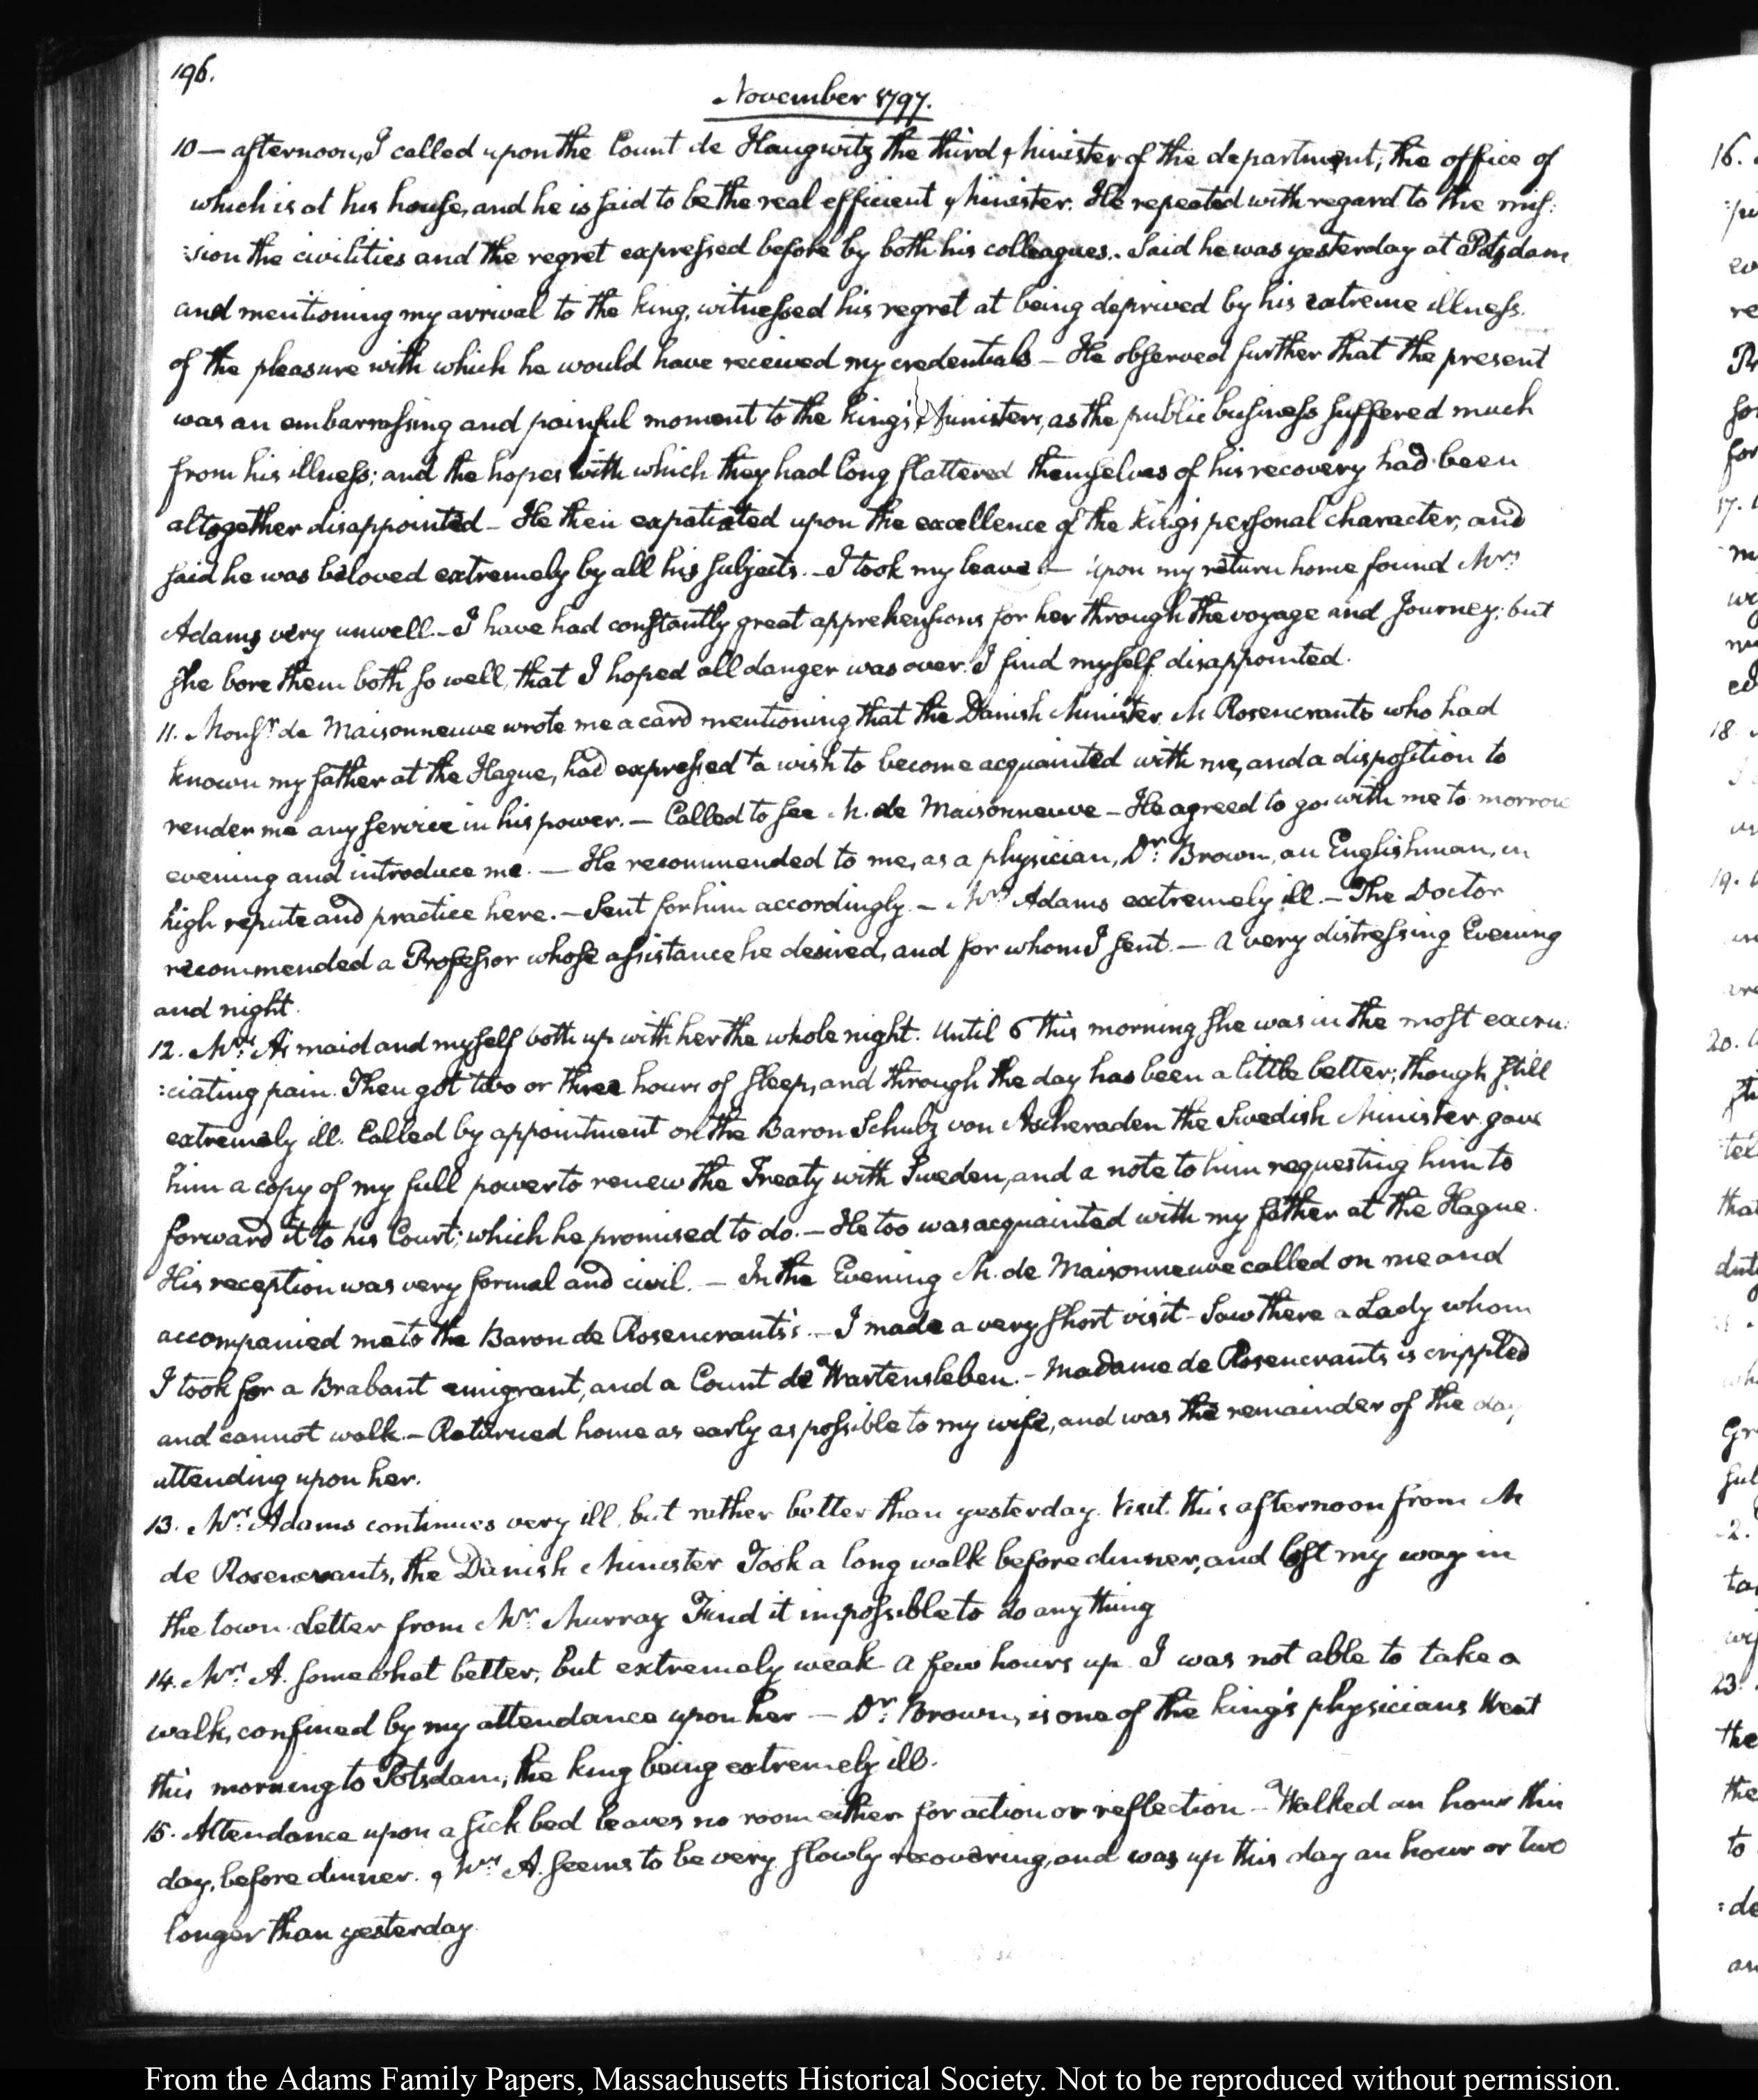 196.
November 1797.
10 — afternoon, I called upon the Count de Haugwitz the third Minister of the department; the office of
which is at his house, and he is said to be the real efficient Minister. He repeated with regard to the mis:
:sion the civilities and the regret expressed before by both his colleagues. Said he was yesterday at Potsdam
and mentioning my arrival to the king, witnessed his regret at being deprived by his extreme illness.
of the pleasure with which he would have received my credentials — He observed further that the present
was an embarrassing and painful moment to the king's Ministers, as the public business suffered much
from his illness; and the hopes with which they had long flattered themselves of his recovery had been
altogether disappointed — He then expatiated upon the excellence of the king's personal character, and
said he was beloved extremely by all his subjects. — I took my leave — Upon my return home found Mrs.
Adams very unwell. — I have had constantly great apprehensions for her through the voyage and Journey; but
she bore them both so well, that I hoped all danger was over. I find myself disappointed.
11. Monsr. de Maisonneuve wrote me a card mentioning that the Danish Minister M Rosencrants who had
known my father at the Hague, had expressed a wish to become acquainted with me, and a disposition to
render me any service in his power. — Called to see M. de Maisonneuve — He agreed to go with me to morrow
evening and introduce me. — He recommended to me, as a physician, Dr. Brown, an Englishman, in
high repute and practice here. — Sent for him accordingly. — Mrs. Adams extremely ill. — The Doctor
recommended a Professor whose assistance he desired, and for whom I sent. — A very distressing Evening
and night.
12. Mrs. A's maid and myself both up with her the whole night. Until 6 this morning she was in the most excru:
:ciating pain. Then got two or three hours of sleep, and through the day has been a little better; though still
extremely ill. Called by appointment on the Baron Schultz von Ascheraden the Swedish Minister gave
him a copy of my full power to renew the Treaty with Sweden, and a note to him requesting him to
forward it to his Court; which he promised to do. — He too was acquainted with my father at the Hague.
His reception was very formal and civil. — In the Evening M. de Maisonneuve called on me and
accompanied me to the Baron de Rosencrants's. — I made a very short visit — Saw there a Lady whom
I took for a Brabant emigrant, and a Count de Wartensleben. — Madame de Rosencrants is crippled
and cannot walk. — Returned home as early as possible to my wife, and was the remainder of the day
attending upon her.
13. Mrs. Adams continues very ill, but rather better than yesterday. Visit this afternoon from M
de Rosencrants, the Danish Minister Took a long walk before dinner, and lost my way in
the town. Letter from Mr. Murray Find it impossible to do any thing
14. Mrs. A. somewhat better, but extremely weak A few hours up. I was not able to take a
walk, confined by my attendance upon her — Dr. Brown, is one of the king's physicians Went
this morning to Potsdam, the king being extremely ill.
15. Attendance upon a sick bed leaves no room either for action or reflection — Walked an hour this
day, before dinner. Mrs. A. seems to be very slowly recovering, and was up this day an hour or two
longer than yesterday.
From the Adams Family Papers, Massachusetts Historical Society. Not to be reproduced without permission.